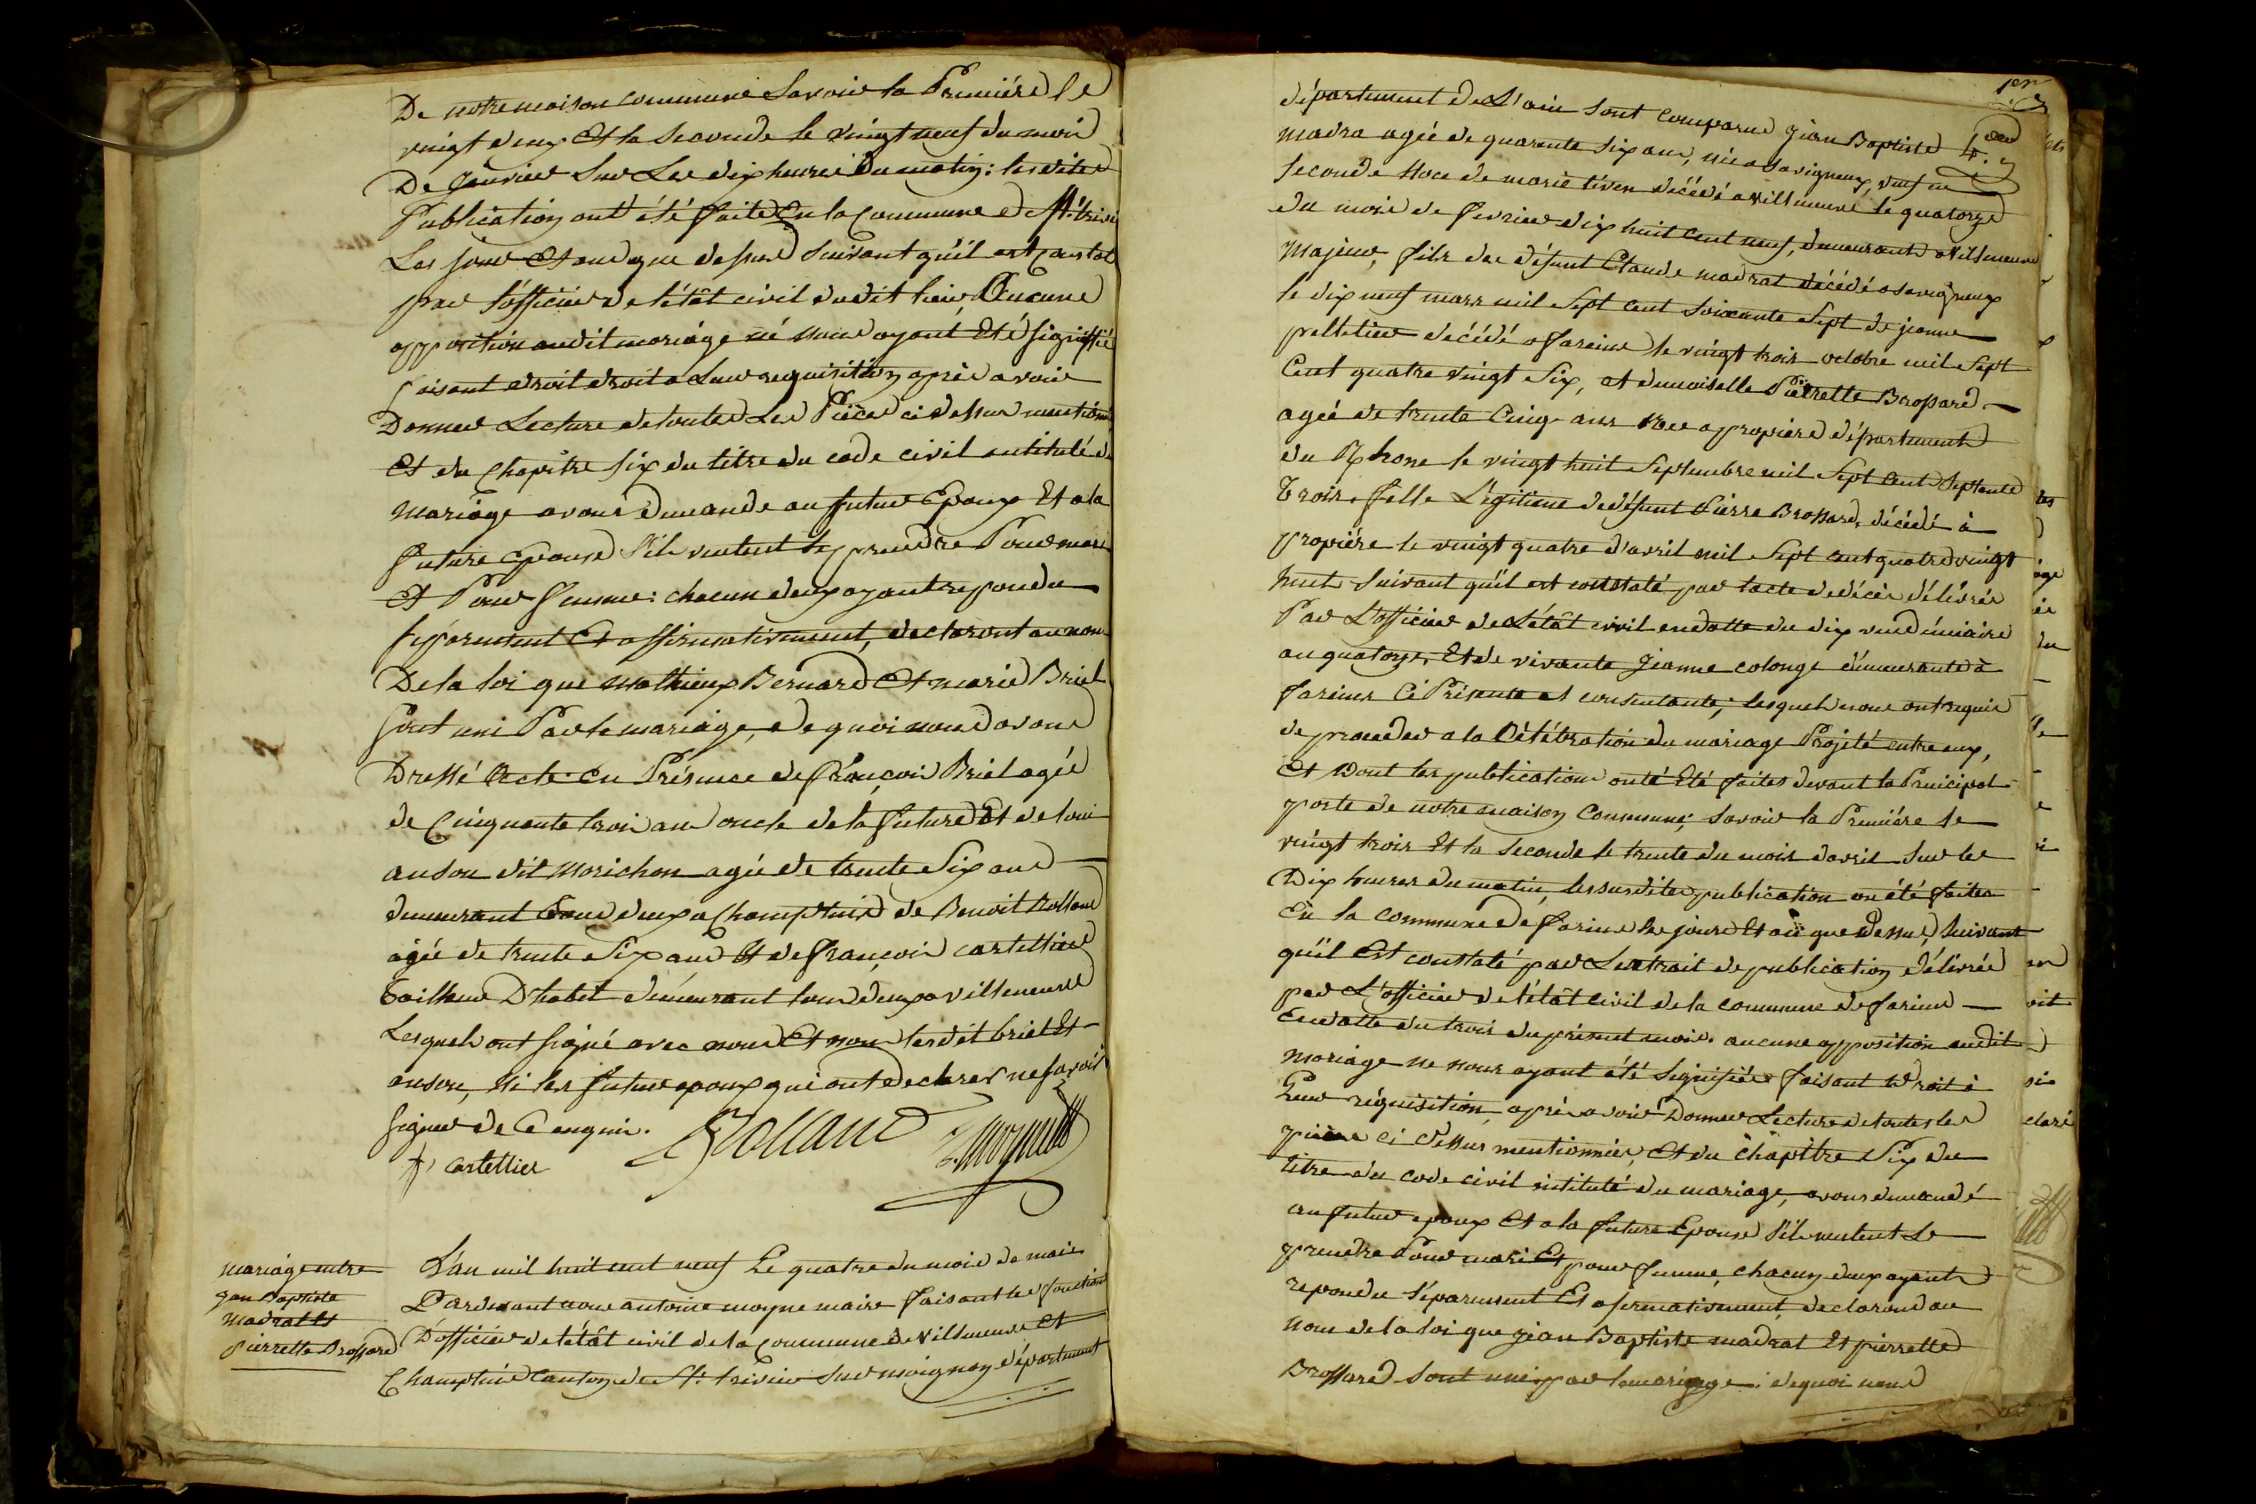 De notre maison commune Savoir la Première le
vingt deux Et la Seconde le vingt neuf du moi
De Janvier Sur Les dix heures Du matin: les dites
Publication ont été faite En la Commune de St. trivie
Les jour Et an que dessus Suivant qu'il est Constat
par l'officier de l'étât civil dudit lieu Aucune
opposition audit mariage né nous ayant Eté Signiffié
faisant droit droit a Leur requisition après avoir
Donner Lecture de toutes Les Pièces ci dessus mention
Et du Chapitre Six du titre du code civil intitulé du
Mariage avons Demande au futur Epoux Et a la
future epouse S'ils veulent se prendre Pour mari
et Pour femme: chacun deux ayant repondu
Séparement Et affirmativement, declaront au nom
De la loi que Mathieux Bernard Et marie Briel
Sont uni Par le mariage, de quoi nous avons
Dressé Acte En Présence de françois Briel agée
de Cinquante troi ans oncle de la future Et de loui
anson dit Morichon agée de trente Six ans
demeurant tous deux a Champteins de Benoit Rolland
agée de trente Six ans Et de françois cartellier
tailleur D'habit démeurant tous deux a villeneuve
Lesquels ont Signé avec nous Et non les dit briel Et
anson, Ni les futur epoux qui ont declarer ne Savoir
Signer de Ce enquis.
Rolland
f. cartellier
mariage entre
jean Baptiste
Madrat Et
Pierrette Brossard
L'an mil huit cent neuf Le quatre du mois de mai
Pardevant nous antoine moyne maire faisant les fonction
D'officier de l'étât civil de la Commune de Villeneuve et
Champtein Canton de St. trivier Sur moignan département
département de L'ain Sont Comparus jean Baptiste
Madra agée de quarante Six ans, née a Savigneux, veuf en
Seconde Noce de marie tiven décédé a villeneuve le quatorze
du mois de fevrier dix huit cent neuf, demeurant a Villeneuve
Majeur, fils de défunt Claude madrat décédé a Savigneux
le dix neuf mars mil Sept cent Soixante Sept de jeanne
pelletier décédé a fareins le vingt trois octobre mil Sept
Cent quatre vingt Six, et demoiselle Pierrette Brossard
agée de trente Cinq ans née a propière département
du Rhone le vingt huit Septembre mil Sept Cent Septante
Trois, fille Légitime de défunt Pierre Brossard, décédé à
propière le vingt quatre d'avril mil Sept cent quatre vingt
huit Suivant qu'il est constaté par l'acte de décès délivrée
Par L'officier de L'étât civil en datte du dix vendémiaire
an quatorze, Et de vivante Jeanne colonge démeurante à
fareins Ci Présente et consentante; lesquels nous ont requis
de proceder a la Célébration du mariage Projeté entre eux,
Et Dont les publications onté Eté faites devant la Principal
porte de notre maison Commune; Savoir la Première le
vingt trois Et la Seconde le trente du mois d'avril Sur les
Dix heures du matin, les susdites publication on été faites
En la Commune de fareins les jours Et an que Dessus, Suivant
qu'il Est constaté par L'extrait de publication délivrée
par L'officier de l'étât civil de la commune de fareins
En datte du trois du présent mois. aucune opposition audit
mariage ne nous ayant été Signifiée faisant droit à
Leur réquisition, après avoir Donner Lecture de toutes les
pièces ci Dessus mentionnées, Et du chapitre Six du
titre du code civil intitulé du mariage, avons demandé
au futur epoux Et a la future Epouse S'ils veulent Se
prendre Pour mari Et pour femme, chacun deux ayant
repondu Séparement Et afirmativement, declarond au
nom de la loi que jean Baptiste madrat Et pierrette
Brossard Sont unis par le mariage: de quoi nous